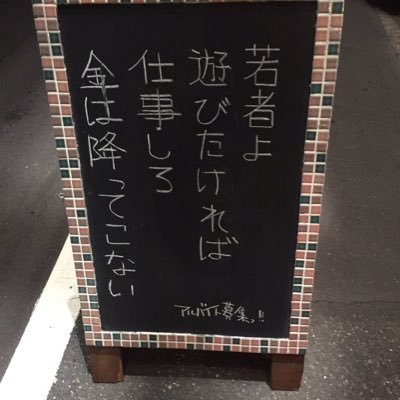 若者よ
遊びたければ
仕事しろ
金は降ってこない
アルバイト募集!!